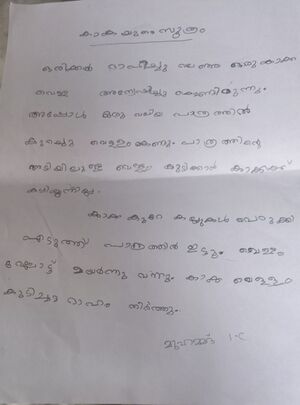 കാകയുടെ സൂത്രം
ഒരിക്കൽ ദാഹിച്ചു വലഞ്ഞ ഒരു കാക
വെള്ളം അന്വേഷിച്ചു കൊണ്ടിരുന്നു.
അപ്പോൾ ഒരു വലിയ പാത്രത്തിൽ
കുറച്ചു വെള്ളം കണ്ടു. പാത്രത്തിന്റെ
അടിയിലുള്ള വെള്ളം കുടിക്കാൻ കാക്കക്ക്
കഴിയുന്നില്ല.
കാക കുറേ കല്ലുകൾ പെറുക്കി
എടുത്ത് പാത്രത്തിൽ ഇട്ടു. വെള്ളം
മേലോട്ട് ഉയർന്നു വന്നു. കാക വെള്ളം
കുടിച്ചു ദാഹം തീർത്തു.
മുഹമ്മദ് 1-C